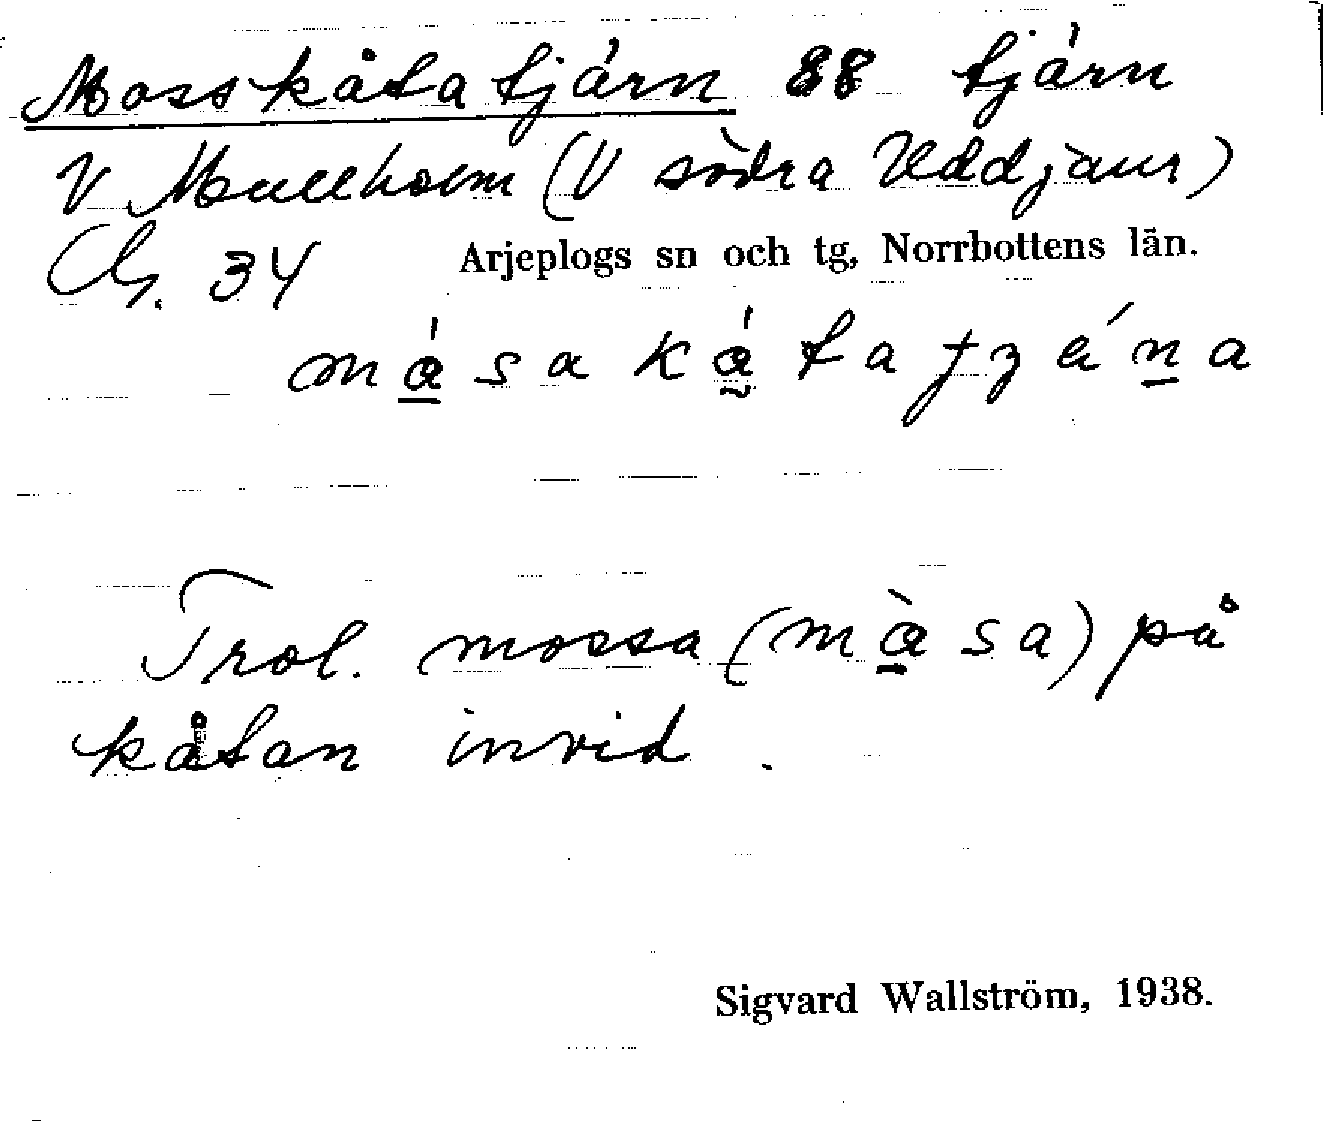 Mosskåtatjärn 88 tjärn
V Mullholm (V södra Uddjaur)
34 Arjeplogs sn och tg, Norrbottens län.
måsakåtatjǽna
Trol. mossa (måsa) på
kåtan invid.
Sigvard Wallström, 1938.